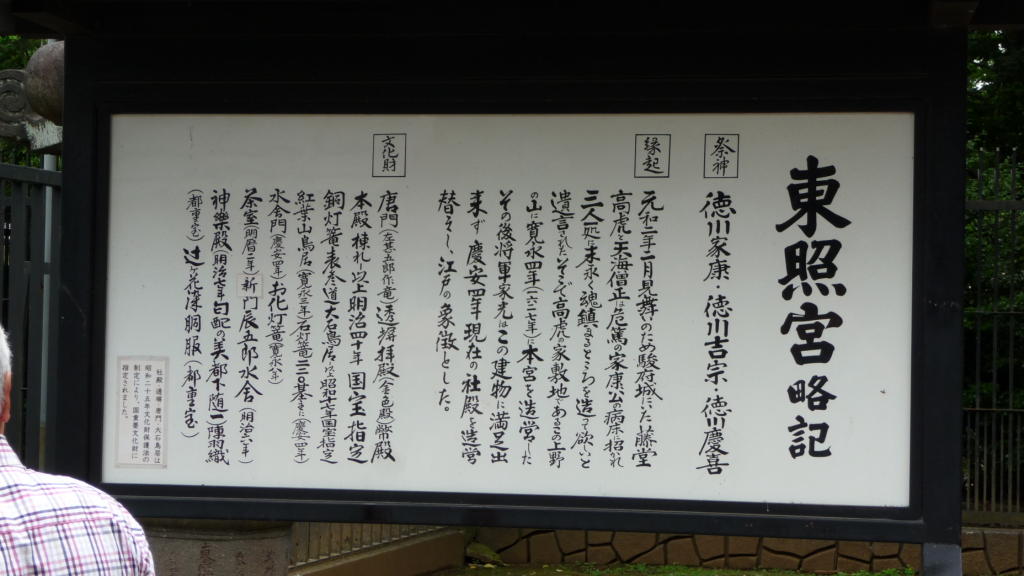 東照宮略記
祭神
徳川家康・徳川吉宗・徳川慶喜
縁起
元和二年二月見舞のため駿府城にいた藤堂
高虎と天海僧正は危篤の家康公の病床に招かれ
三人一処に末永く魂鎮まるところを造って欲しいと
遺言された。そこで高虎の家敷地であるこの上野
の山に寛永四年(一六二七年)に本宮を造営した
その後将軍家光はこの建物に満足出
来ず慶安四年現在の社殿を造営
替えし、江戸の象徴とした。
文化財
唐門(左甚五郎作竜)透塀拝殿(金色殿)幣殿
本殿棟札・以上明治四十年国宝指定
銅灯篭・表参道大石鳥居・以上昭和十七年国宝指定
紅葉山鳥居(寛永三年)石灯篭二三〇基を(慶安四年)
水舎門(慶安四年)お化灯篭(寛永八年)
茶室(明暦二年)新門辰五郎水舎(明治六年)
神楽殿(明治七年)白配の美都下随一)陣羽織
(都重宝)辻ヶ花染胴服(都重宝)
社殿・透塀・唐門・大石鳥居は
昭和二十五年文化財保護法の
制定により、国重要文化財に
指定されました。